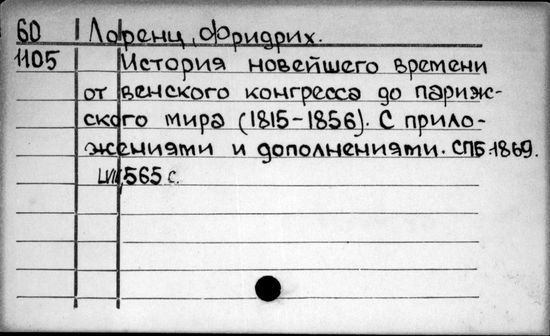 60 Лоренц, Фридрих.
1105 История новейшего времени
от венского конгресса до париж-
ского мира (1815-1856). С прило-
жениями и дополнениями. СПБ. 1869.
LVII, 565 с.